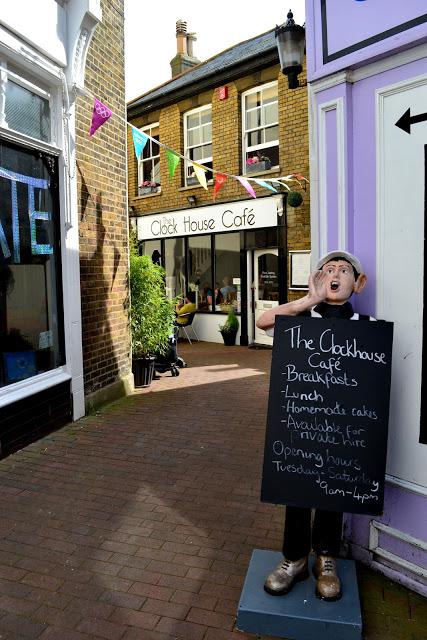 The
Clock House Café
The Clockhouse
Café
-Breakfasts
-Lunch
-Homemade cakes
-Available for
private hire
Opening hours
Tuesday-Saturday
9am-4pm